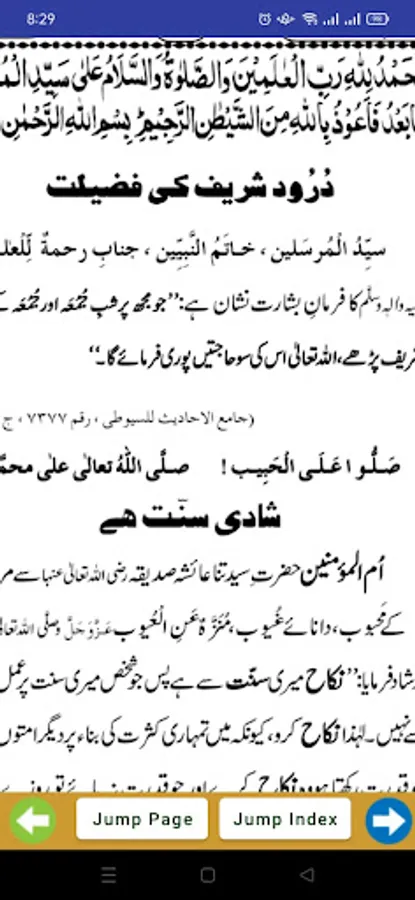 8:29
حَمْدُ لِلّٰهِ رَبِّ الْعٰلَمِیْنَ وَالصَّلٰوةُ وَالسَّلَامُ عَلٰی سَیِّدِ الْمُ
بَعْدُ فَاَعُوْذُ بِاللّٰهِ مِنَ الشَّیْطٰنِ الرَّجِیْمِ ؕ بِسْمِ اللّٰهِ الرَّحْمٰنِ
دُرُود شریف کی فضیلت
سیِّدُ الْمُرسَلین ، خاتَمُ النَّبِیِّین ، جنابِ رحمةٌ لِّلْعٰلَ
یہ والہٖ وسلَّم کا فرمانِ بشارت نشان ہے: ’’جو مجھ پر شبِ جُمُعَہ اور جُمُعَہ کے
ریف پڑھے، اللہ تعالیٰ اس کی سو حاجتیں پوری فرمائے گا۔‘‘
(جامع الاحادیث للسیوطی ، رقم ۷۳۷۷ ، ج
صَلُّوا عَلَی الْحَبِیب ! صلَّی اللهُ تعالیٰ علیٰ محمَّ
شادی سنّت ھے
اُم المؤمنین حضرتِ سیدتنا عائشہ صدیقہ رضی اللہ تعالیٰ عنہا سے مر
کے مَحبوب، دانائے غُیوب، مُنَزَّہٌ عَنِ الْعُیوب عَزَّوَجَلَّ وصلَّی اللہ تعا
شاد فرمایا: ’’نکاح میری سنّت سے ہے پس جو شخص میری سنت پر عمل
سے نہیں۔ لہٰذا نکاح کرو، کیونکہ میں تمہاری کثرت کی بناء پر دیگر امتوں
قدرت رکھتا ہو وہ نکاح کرے اور جو قدرت نہ پائے تو روزے
Jump Page Jump Index